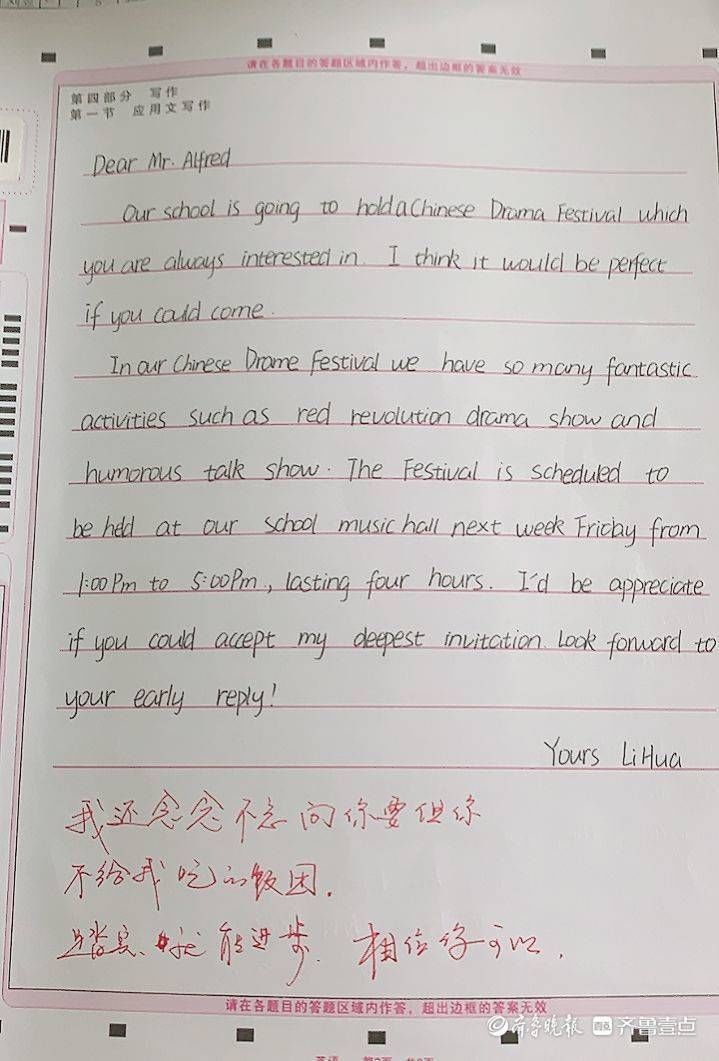 请在各题目的答题区域内作答，超出边框的答案无效
第四部分 写作
第一节 应用文写作
Dear Mr. Alfred
Our school is going to hold a Chinese Drama Festival which
you are always interested in. I think it would be perfect
if you could come.
In our Chinese Drame Festival we have so many fantastic
activities such as red revolution drama show and
humorous talk show. The Festival is scheduled to
be held at our school music hall next week Friday from
1:00 Pm to 5:00 Pm., lasting four hours. I'd be appreciate
if you could accept my deepest invitation. Look forward to
your early reply!
Yours LiHua
我还念念不忘问你要但你
不给我吃的饭团.
踏实、就能进步. 相信你可以.
请在各题目的答题区域内作答，超出边框的答案无效
齐鲁晚报 齐鲁壹点